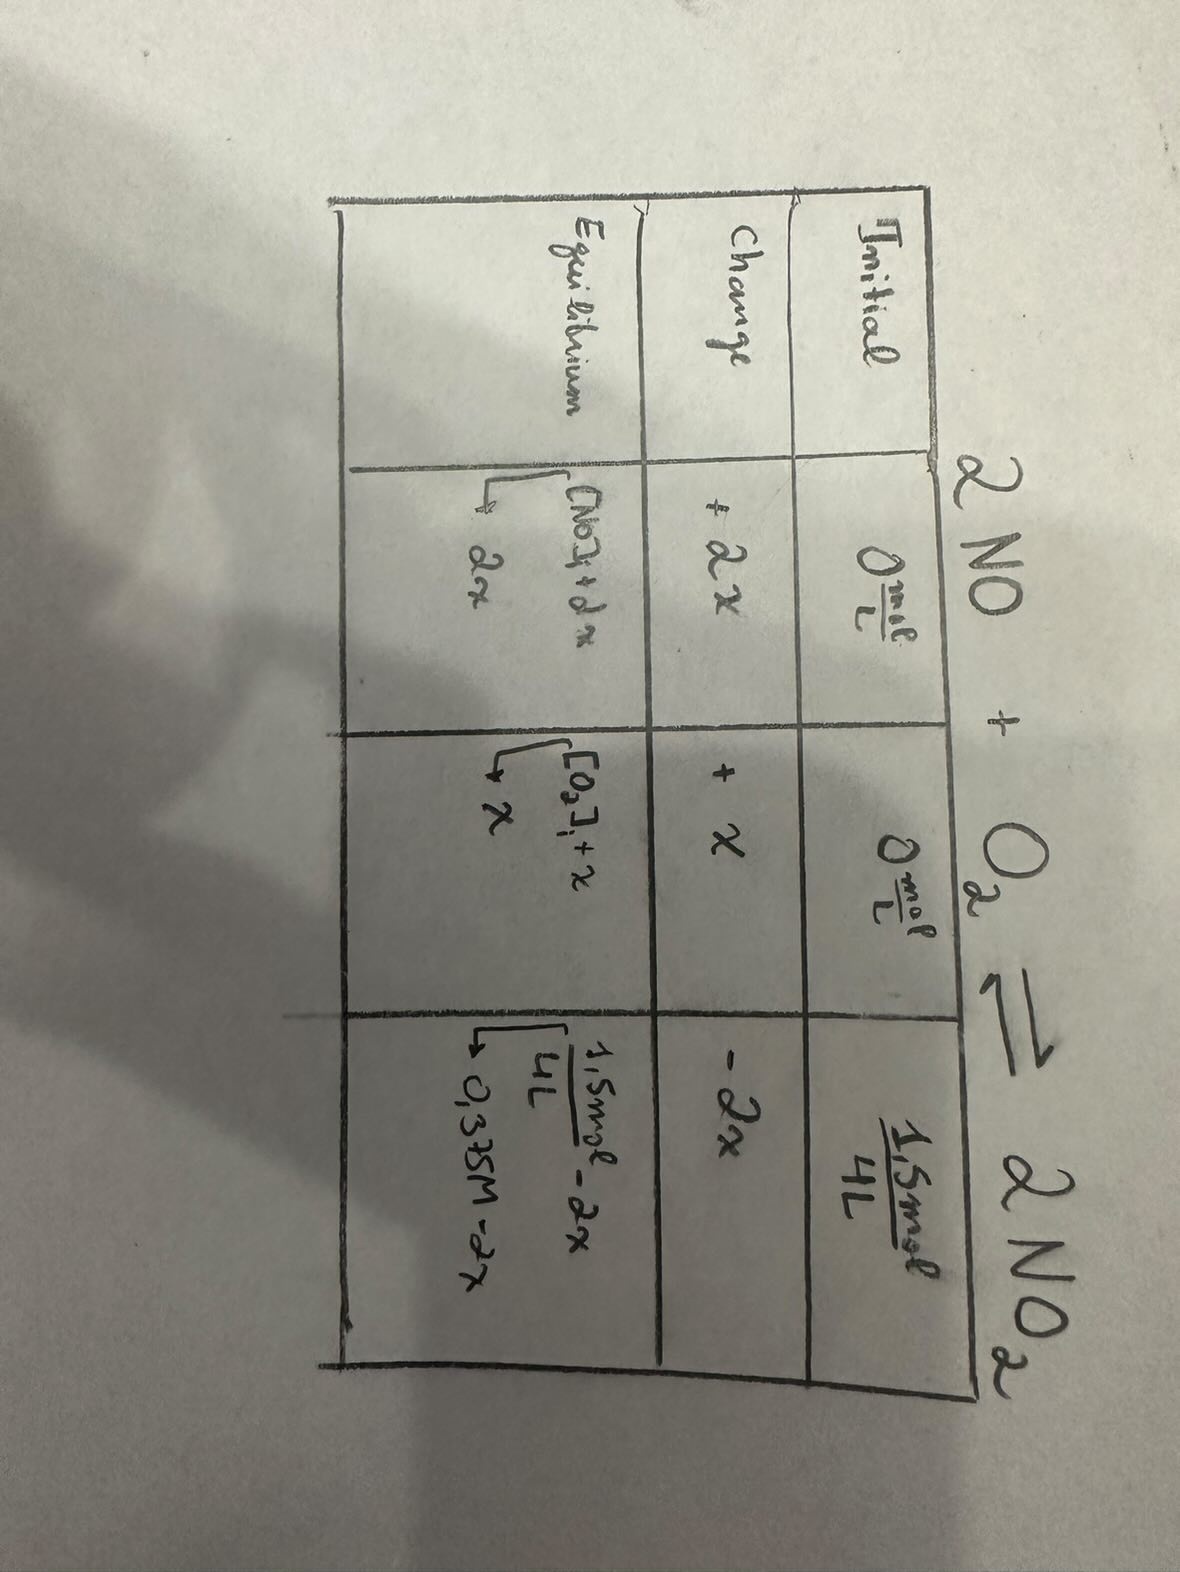 2 NO + O₂ ⇌ 2 NO₂
Initial 0 mol/L 0 mol/L 1,5mol/4L
Change + 2x + x - 2x
Equilibrium [NO]ᵢ + 2x [O₂]ᵢ + x 1,5mol/4L - 2x
↳ 2x ↳ x ↳ 0,375M - 2x